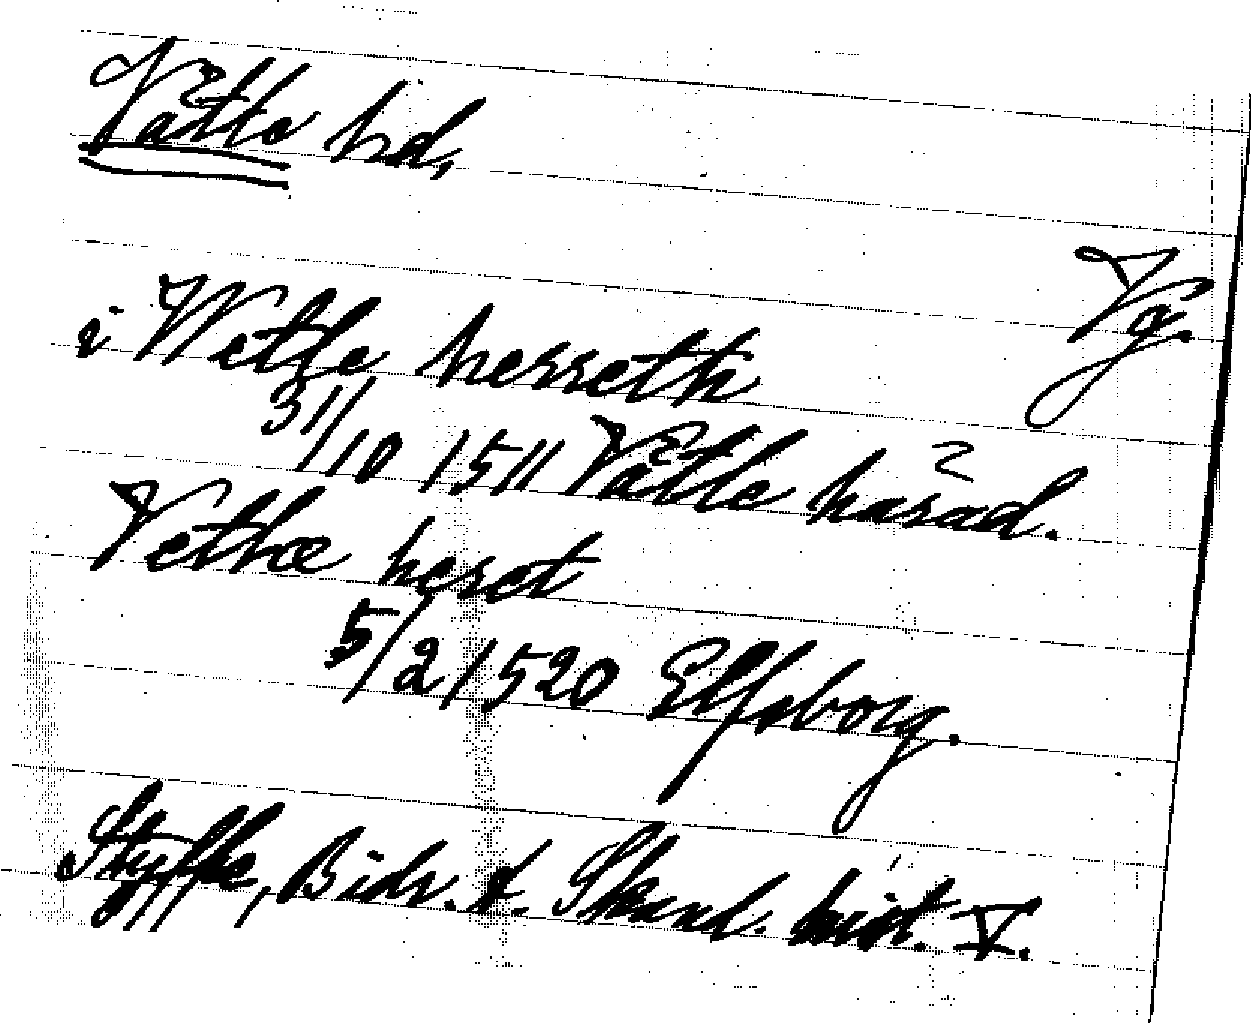 Vättle hd,
Vg.
i Wetle herreth
31/10 1511 Vättle härad.
Vethe heret
5/2 1520 Elfsborg.
Styffe, Bidr. t. Skand. hist. V.